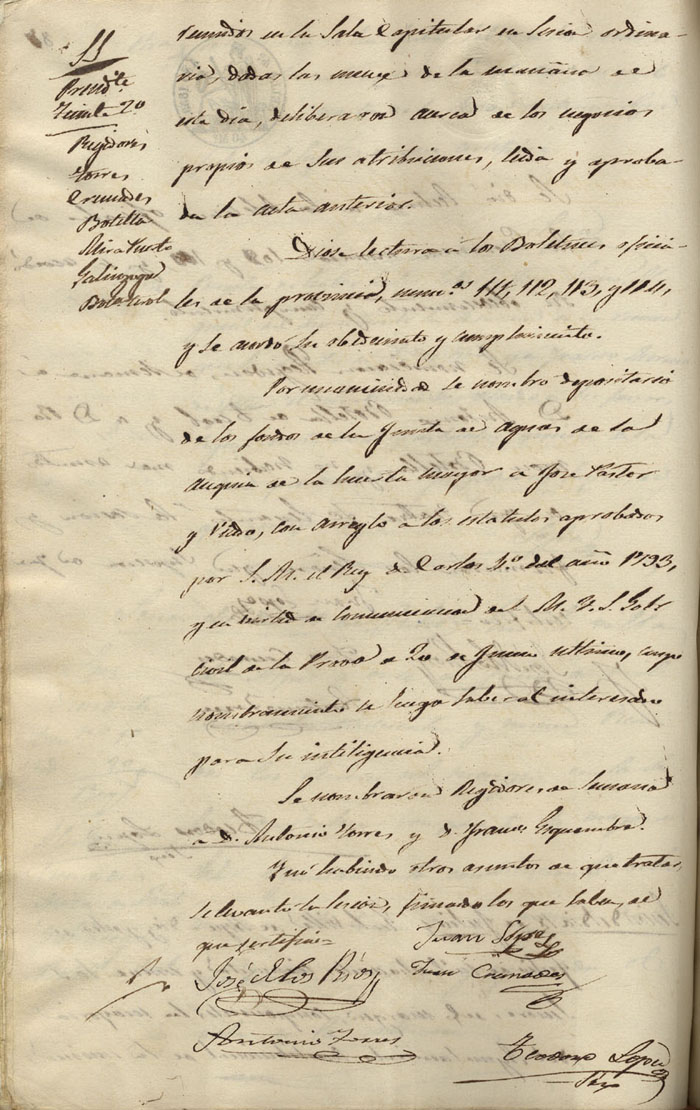 SS
Presidte
Teinte 2º
Regidores
Torres
Cremades
Botella
Mira
Galiana
reunidos en la Sala Capitular en Sesion ordina-
ria, dadas las nueve de la mañana de
este dia, deliberaron acerca de los negocios
propios de sus atribuciones, leida y aproba-
da la acta anterior.
Diose lectura a los Boletines oficia-
les de la provincia, numos 111, 112, 113, y 114,
y se acordó su obedecimto y cumplimiento.
Por unanimidad se nombró depositario
de los fondos de la Junta de aguas de la
acequia de la huerta mayor a Jose Paster
y con arreglo a los estatutos aprobados
por S. M. el Rey D. Carlos 4º del año 1793,
y en virtud de comunicacion del M. Y. S. Gobr
civil de la Prova de 20 de Junio ultimo, cuyo
nombramiento se haga saber al interesado
para su inteligencia.
Se nombraron Regidores de Semana
a D. Antonio Torres y D. Franco Esquembre.
Y no habiendo otros asuntos de que tratar,
se levanto la Sesion, firmando los que saben, de
que certifico=
Juan Lopez
José de los Rios
Juan Cremades
Antonio Torres
Teodoro Lopez
Srio